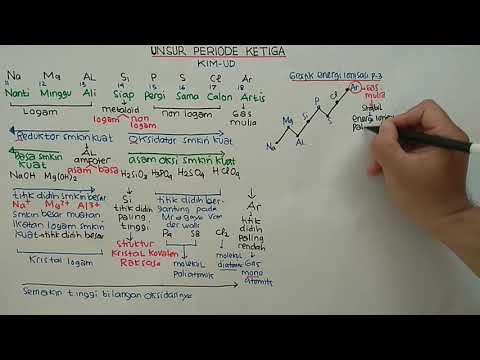 UNSUR PERIODE KETIGA
KIM-UD
Na Mg AL Si P S Cl Ar
11 12 13 14 15 16 17 18
Nanti Minggu Ali Siap Pergi Sama Calon Artis
Logam
metaloid
logam non logam
non logam
gas mulia
Reduktor smkin kuat
Oksidator smkin kuat
Basa smkin kuat
AL
amfoter
asam basa
asam oksi smkin kuat
NaOH Mg(OH)2
H2SiO3 H3PO4 H2SO4 HClO4
titik didih smkin besar
Na+ Mg2+ Al3+
smkin besar muatan
Ikatan logam smkin
kuat → titik didih besar
Kristal logam
Si
titik didih
paling
tinggi
struktur
kristal kovalen
Raksasa
titik didih ber-
gantung pada
Mr & gaya van
der walls
P4 S8 Cl2
molekul
poliatomik
molekul
diatomik
Ar
titik
didih
paling
rendah
Gas
mono
atomik
Semakin tinggi bilangan oksidasinya
Grafik Energi Ionisasi P-3
Na Mg AL Si P S Cl Ar
Gas
mulia
stabil
energi ionisasi